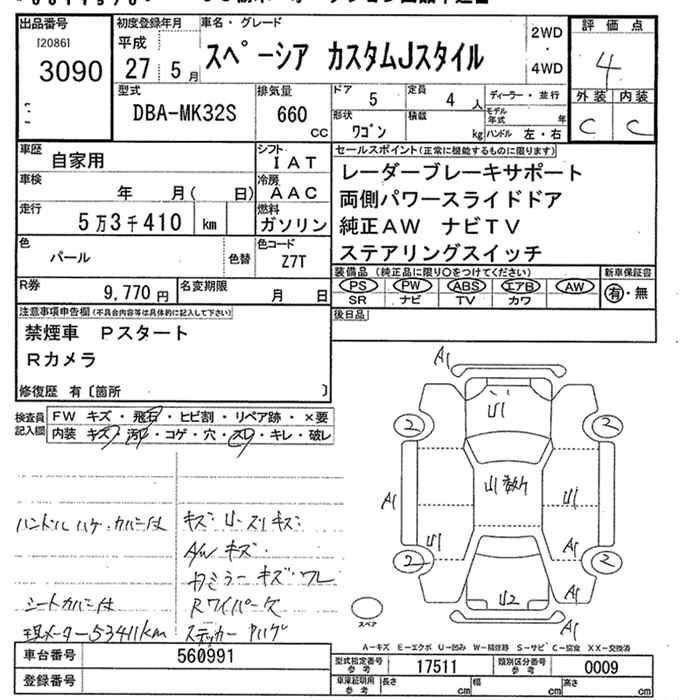 出品番号
[2086]
3090
初度登録年月
平成
27 5月
車名・グレード
スペーシア カスタムJスタイル
2WD
・
4WD
評価点
4
外装 内装
C C
型式
DBA-MK32S
排気量
660
cc
ドア
5
定員
4人
形状
ワゴン
積載
kg
ディーラー・並行
モデル年式 年
ハンドル 左・右
車歴
自家用
シフト
IAT
車検
年 月( 日)
冷房
AAC
走行
5万3千410 km
燃料
ガソリン
色
パール
色替
色コード
Z7T
R券
9,770円
名変期限
月 日
セールスポイント(正常に機能するものに限ります)
レーダーブレーキサポート
両側パワースライドドア
純正AW ナビTV
ステアリングスイッチ
装備品 (純正品に限り○をつけてください)
PS PW ABS エアB AW
SR ナビ TV カワ
新車保証書
有・無
後日品
注意事項申告欄(不具合内容等は具体的に記入して下さい)
禁煙車 Pスタート
Rカメラ
修復歴 有〔箇所 〕
検査員
記入欄
FW キズ・飛石・ヒビ割・リペア跡・×要
内装 キズ・汚れ・コゲ・穴・スレ・キレ・破レ
ハンドルハゲ・カバー付
シートカバー付
現メーター53411km
キズ・Uズリキズ
A/Wキズ・
カミラーキズ・ワレ
Rワイパーケ
ステッカーハゲ
A1
U1
2
2
U1数ケ
A1
U1
A1
U1
A1
2
2
U2
A1
A1
スペア
A-キズ E-エクボ U-凹み W-補修跡 S-サビ C-腐食 XX-交換済
車台番号
560991
登録番号
型式指定番号
参考
17511
類別区分番号
参考
0009
車庫証明用
参考
長さ cm
幅 cm
高さ cm